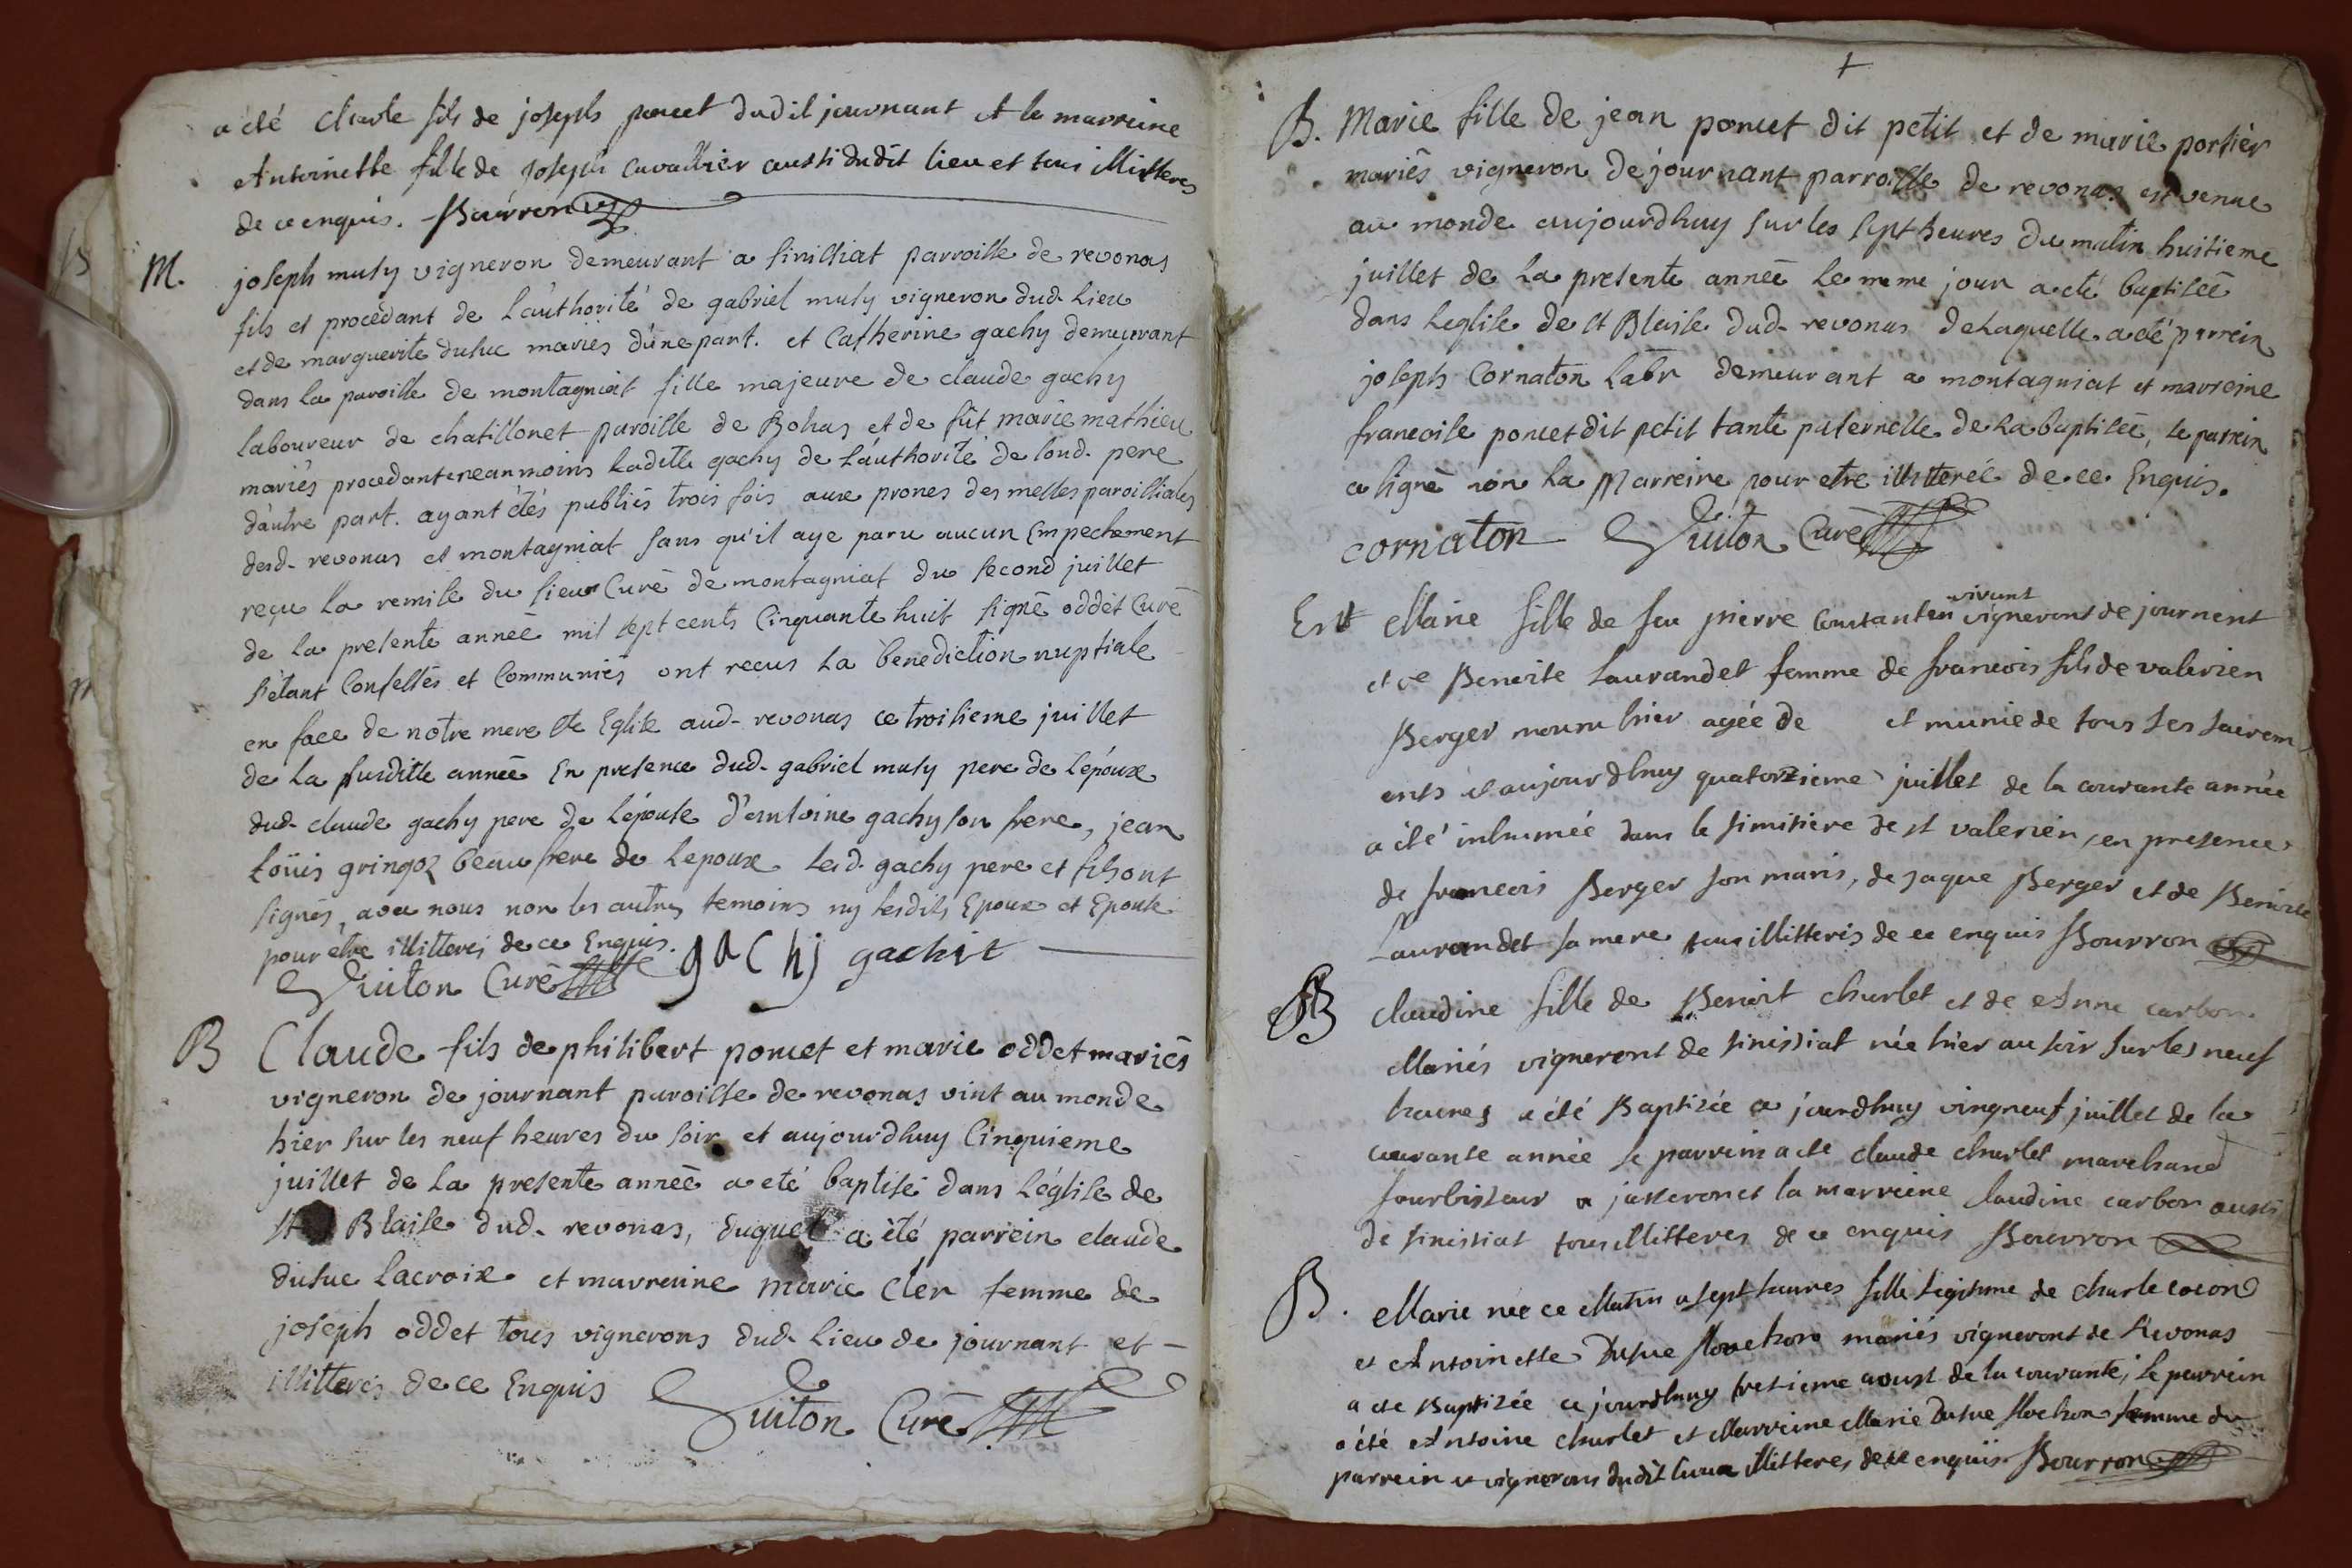 a été charle fils de joseph poncet dudit journant et la marreine
Antoinette fille de Joseph cavallier aussi dudit lieu et tous illitteres
de ce enquis. Bourron
M. joseph musy vigneron demeurant a sinissiat parroisse de revonas
fils et procedant de l'authorité de gabriel musy vigneron dud. lieu
et de marguerite dusuc mariés d'une part. et Catherine gachy demeurant
dans la paroisse de montagniat fille majeure de claude gachy
laboureur de chatillonet paroisse de Bohas et de füt marie mathieu
mariés procedant neanmoins laditte gachy de l'authorité de sond. pere
d'autre part. ayant étés publiés trois fois aux prones des messes paroissiales
desd. revonas et montagniat sans qu'il aye paru aucun Empechement
reçu la remise du sieur Curé de montagniat du second juillet
de la presente année mil sept cents Cinquante huit signé oddet Curé
s'étant Confessés et Communiés ont recus la benediction nuptiale
en face de notre mere ste Eglise aud. revonas ce troisieme juillet
de la susditte année En presence dud. gabriel musy pere de l'époux
dud. claude gachy pere de l'épouse d'antoine gachy son frere, jean
loüis gringoz beau frere de l'epoux lesd. gachy pere et fils ont
signés, avec nous non les autres temoins ny lesdits Epoux et Epouse
pour etre illitteres de ce Enquis. gachy gachit
Guiton Curé
B Claude fils de philibert poncet et marie oddet mariés
vigneron de journant paroisse de revonas vint au monde
hier sur les neuf heures du soir et aujourdhuy Cinquieme
juillet de la presente année a eté baptisé dans l'église de
st Blaise dud. revonas, duquel a été parrein claude
dusuc lacroix et marreine marie cler femme de
joseph oddet tous vignerons dud. lieu de journant et
illitteres de ce Enquis Guiton Curé
B. Marie fille de jean poncet dit petit et de marie portier
mariés vigneron de journant parroisse de revonas est venue
au monde aujourdhuy sur les sept heures du matin huitieme
juillet de la presente année le meme jour a eté baptisée
dans leglise de st Blaise dud. revonas de laquelle a été parrein
joseph Cornaton labr demeurant a montagniat et marreine
francoise poncet dit petit tante paternelle de la baptisée, le parrein
a signé non la Marreine pour etre illitterée de ce Enquis.
cornaton Guiton Curé
Ent Marie fille de feu pierre Constantin vivant vigneront de journent
et de Benoite Laurandet femme de francois fils de valerien
Berger mourut hier agée de et munie de tous ses sacrem
ents et aujourdhuy quatorzieme juillet de la courante année
a été inhumée dans le simitiere de st valerien, en presence
de francois Berger son maris, de jaque Berger et de Benoite
Laurandet sa mere tous illitteris de ce enquis Bourron
B claudine fille de Benoit churlet et de Anne carbon
Mariés vigneront de sinissiat née hier au soir sur les neuf
heures a été Baptizée a jourdhuy vingneuf juillet de la
courante année le parrein a eté claude churlet marchand
fourbisseur a jasseron et la marreine claudine carbon aussi
de sinissiat tous illitteres de ce enquis Bourron
B. Marie née ce Matin a sept heures fille legitime de charle cocon
et Antoinette Dusuc mariés vigneront de Revonas
a eté Baptizée a jourdhuy tresieme aoust de la courante, le parrein
a été Antoine churlet et Marreine Marie Dusuc femme du
parrein et vignerons dudit lieu illitteres de ce enquis Bourron